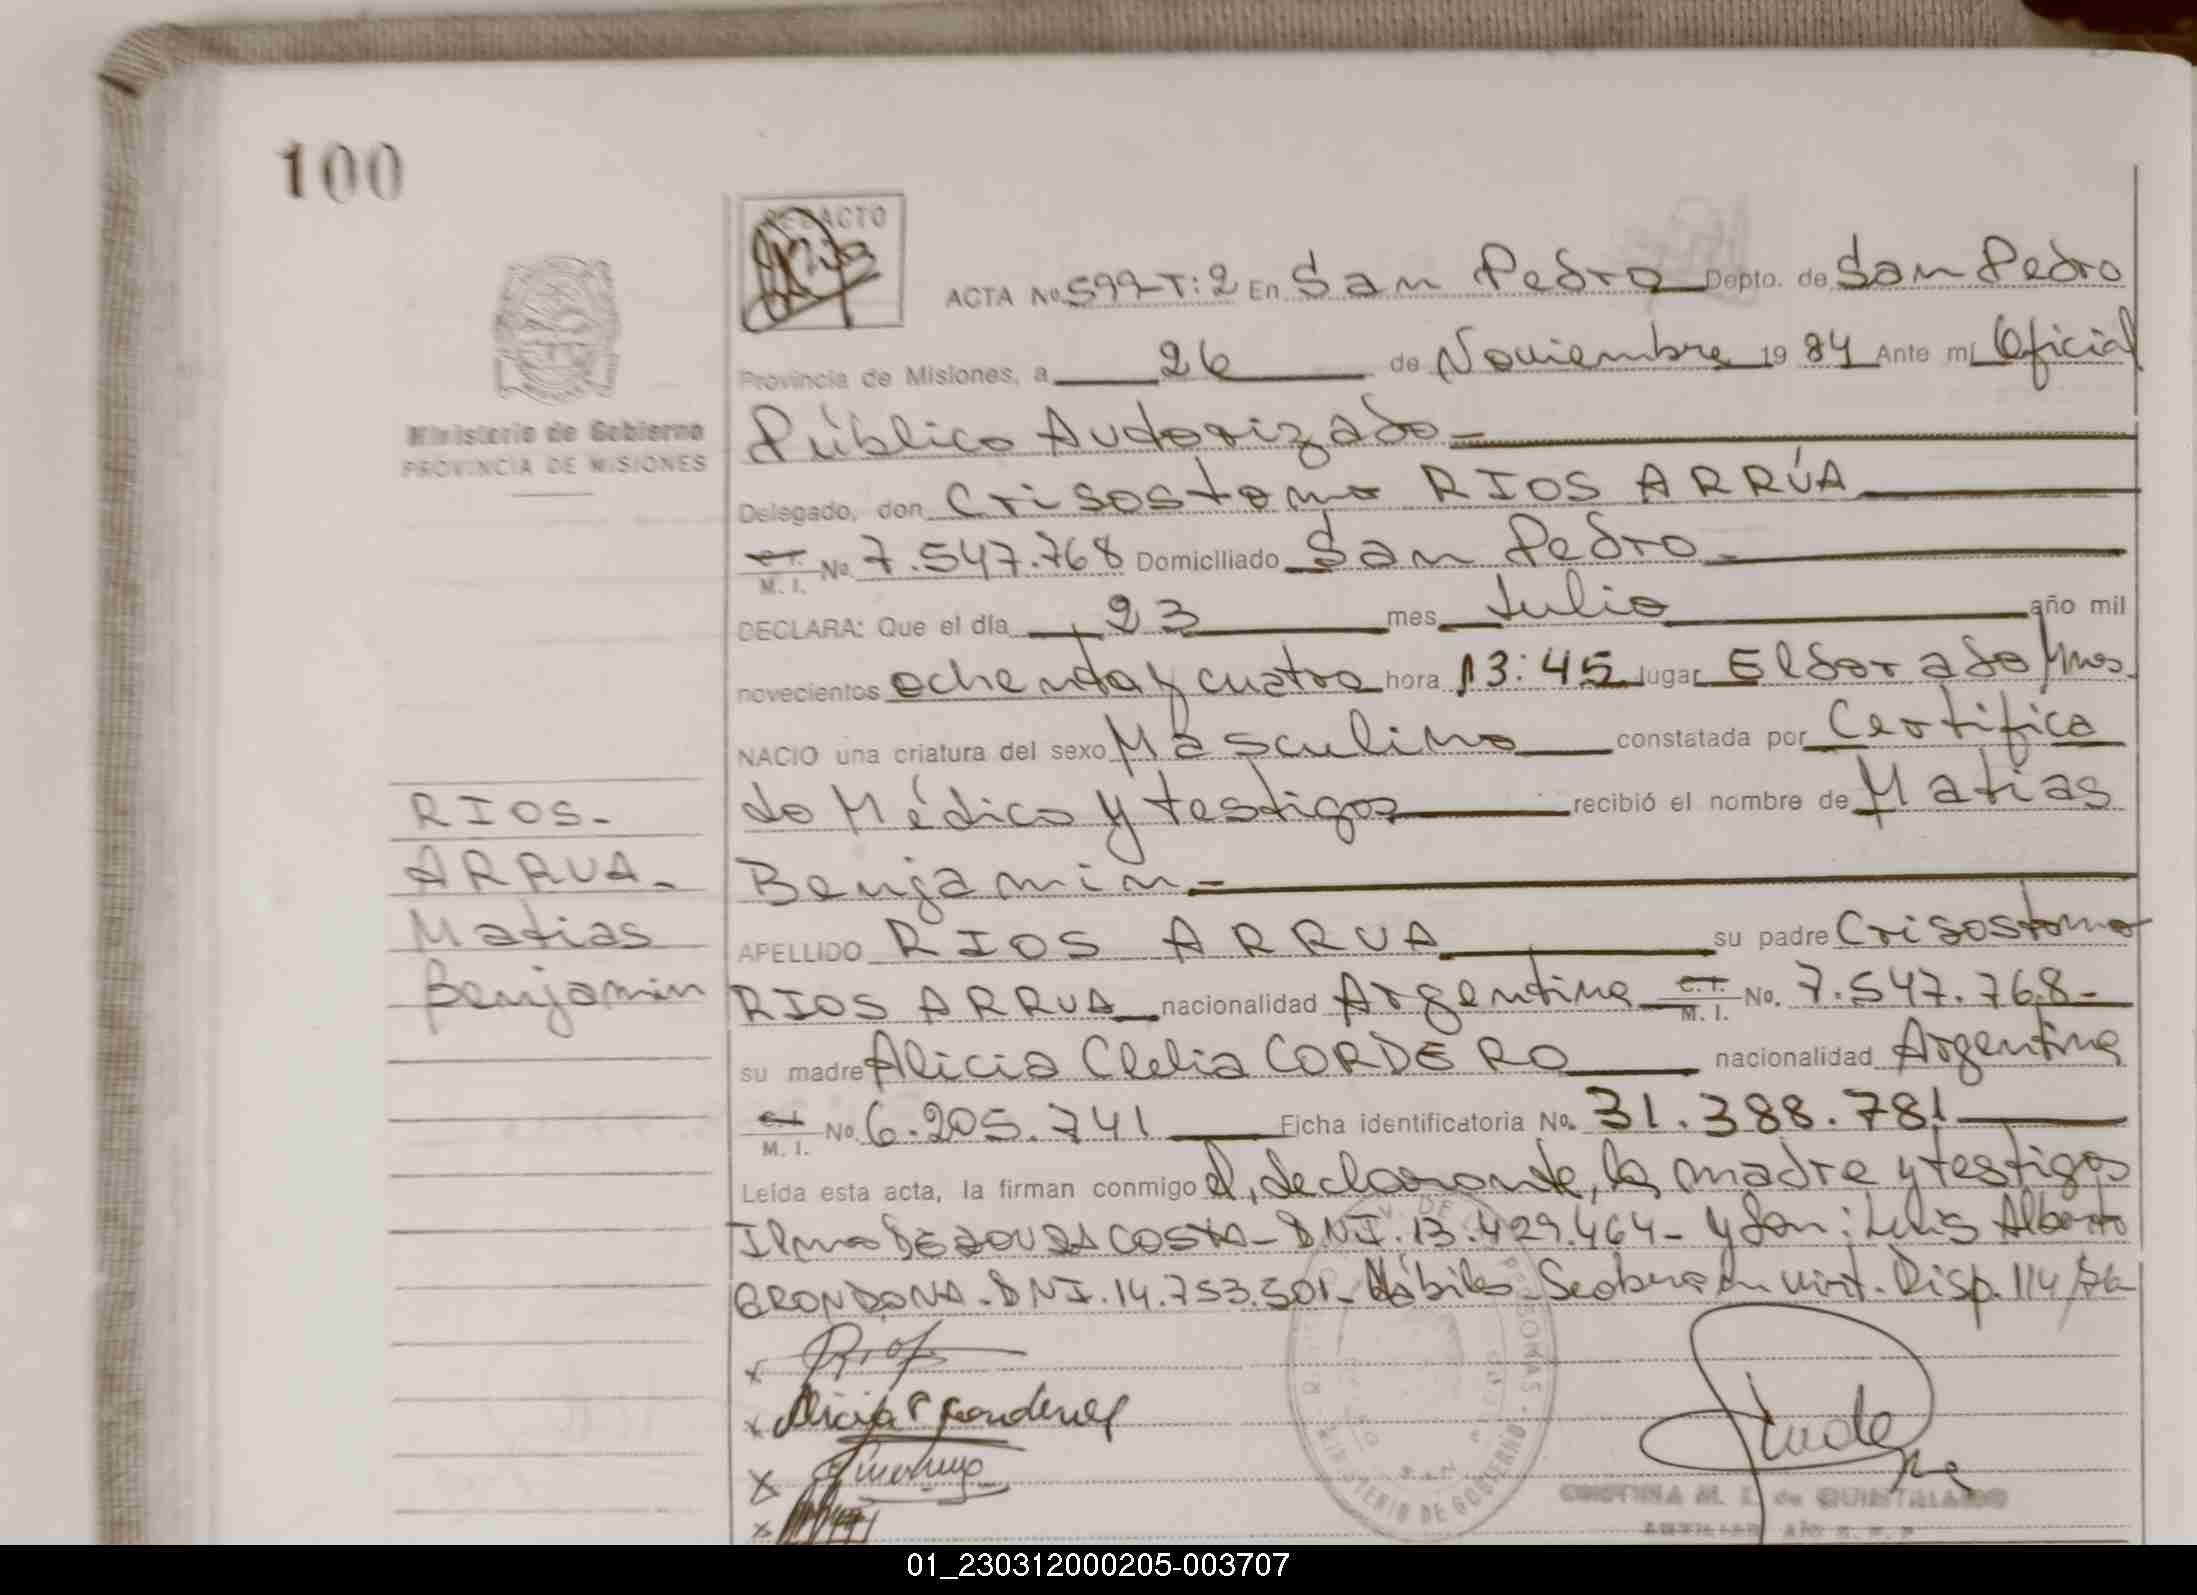 100
REDACTO
ACTA No 599-T:2 En San Pedro Depto. de San Pedro
Provincia de Misiones, a 26 de Noviembre 1984 Ante mí Oficial
Público Autorizado
Delegado, don Crisostomo RIOS ARRÚA
C. I.
M. I. No 7.547.768 Domiciliado San Pedro
DECLARA: Que el día 23 mes Julio año mil
novecientos ochenta y cuatro hora 13:45 lugar Eldorado Mnes.
NACIO una criatura del sexo Masculino constatada por Certifica
do Médico y testigos recibió el nombre de Matias
Benjamin
APELLIDO RIOS ARRUA su padre Crisostomo
RIOS ARRUA nacionalidad Argentina C. I. M. I. No. 7.547.768-
su madre Alicia Clelia CORDERO nacionalidad Argentina
C. I.
M. I. No 6.205.741 Ficha identificatoria No. 31.388.781
Leída esta acta, la firman conmigo el declarante, la madre y testigos
COSTA- DNI. 13.429.464- y Don: Luis Alberto
GRONDONA. DNI. 14.753.501- Hábiles- Disp. 114/76
Ministerio de Gobierno
PROVINCIA DE MISIONES
RIOS.
ARRUA.
Matias
Benjamin
Rios
MINISTERIO DE GOBIERNO
CRISTINA M. de QUINTALADO
AUXILIAR
01_230312000205-003707